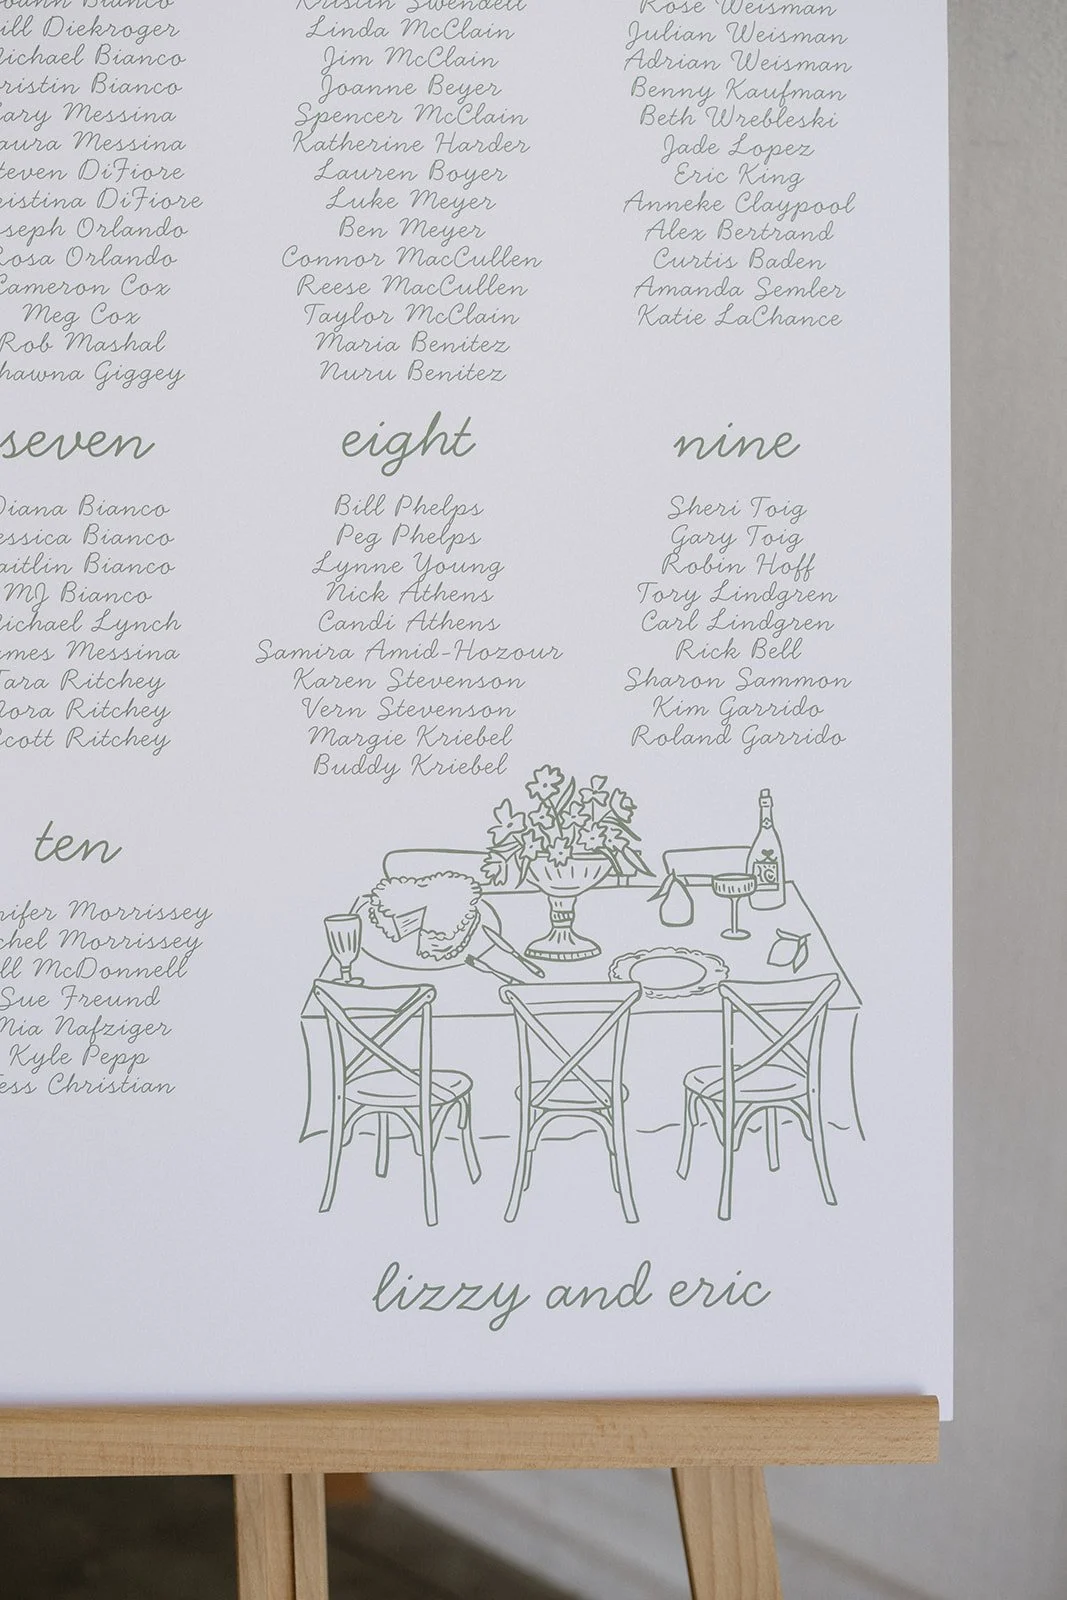 Bianco
ill Diekroger
ichael Bianco
ristin Bianco
ary Messina
aura Messina
teven DiFiore
ristina DiFiore
seph Orlando
Rosa Orlando
Cameron Cox
Meg Cox
Rob Mashal
hawna Giggey
Kristin Swendell
Linda McClain
Jim McClain
Joanne Beyer
Spencer McClain
Katherine Harder
Lauren Boyer
Luke Meyer
Ben Meyer
Connor MacCullen
Reese MacCullen
Taylor McClain
Maria Benitez
Nuru Benitez
Rose Weisman
Julian Weisman
Adrian Weisman
Benny Kaufman
Beth Wrebleski
Jade Lopez
Eric King
Anneke Claypool
Alex Bertrand
Curtis Baden
Amanda Semler
Katie LaChance
seven
Diana Bianco
essica Bianco
aitlin Bianco
MJ Bianco
ichael Lynch
ames Messina
Tara Ritchey
Nora Ritchey
Scott Ritchey
eight
Bill Phelps
Peg Phelps
Lynne Young
Nick Athens
Candi Athens
Samira Amid-Hozour
Karen Stevenson
Vern Stevenson
Margie Kriebel
Buddy Kriebel
nine
Sheri Toig
Gary Toig
Robin Hoff
Tory Lindgren
Carl Lindgren
Rick Bell
Sharon Sammon
Kim Garrido
Roland Garrido
ten
nifer Morrissey
chel Morrissey
ll McDonnell
Sue Freund
Mia Nafziger
Kyle Pepp
ess Christian
lizzy and eric